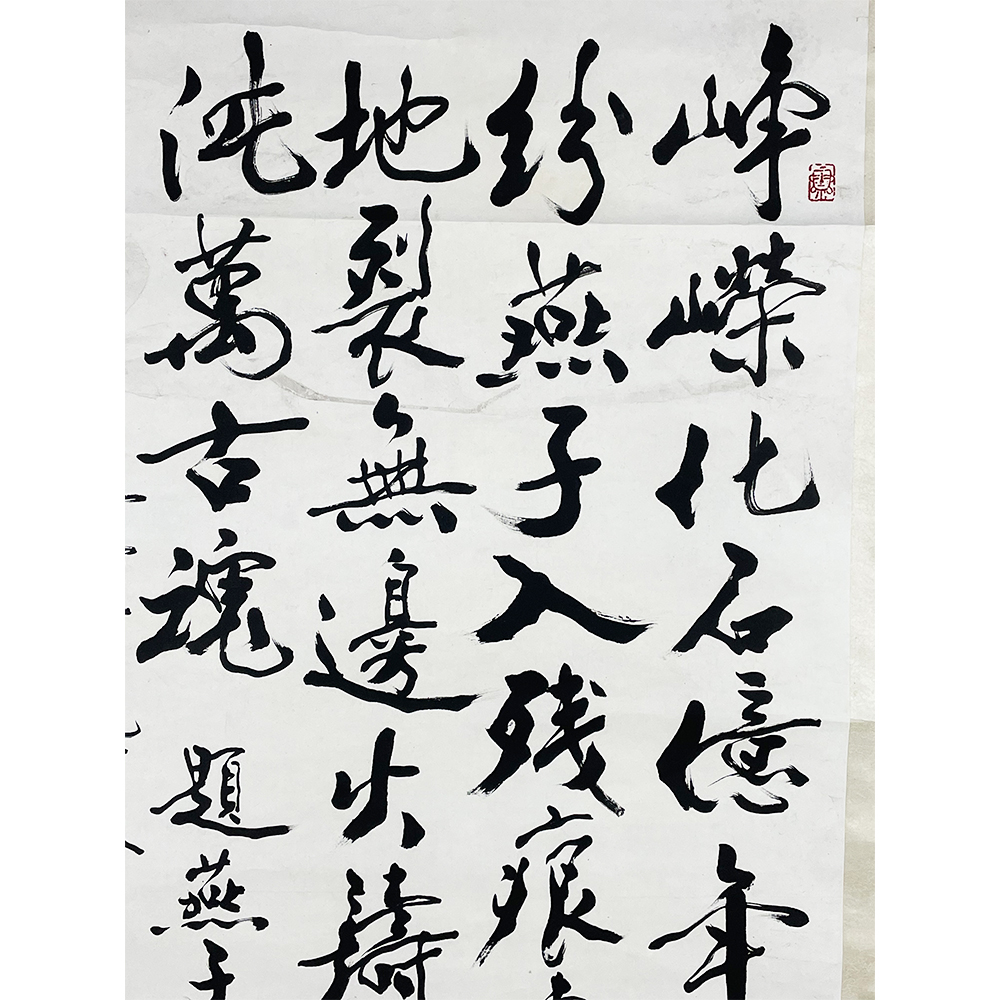 峥嵘化石億年
纷燕子入残痕
地裂無邊火鑄
沌萬古魂
題燕子